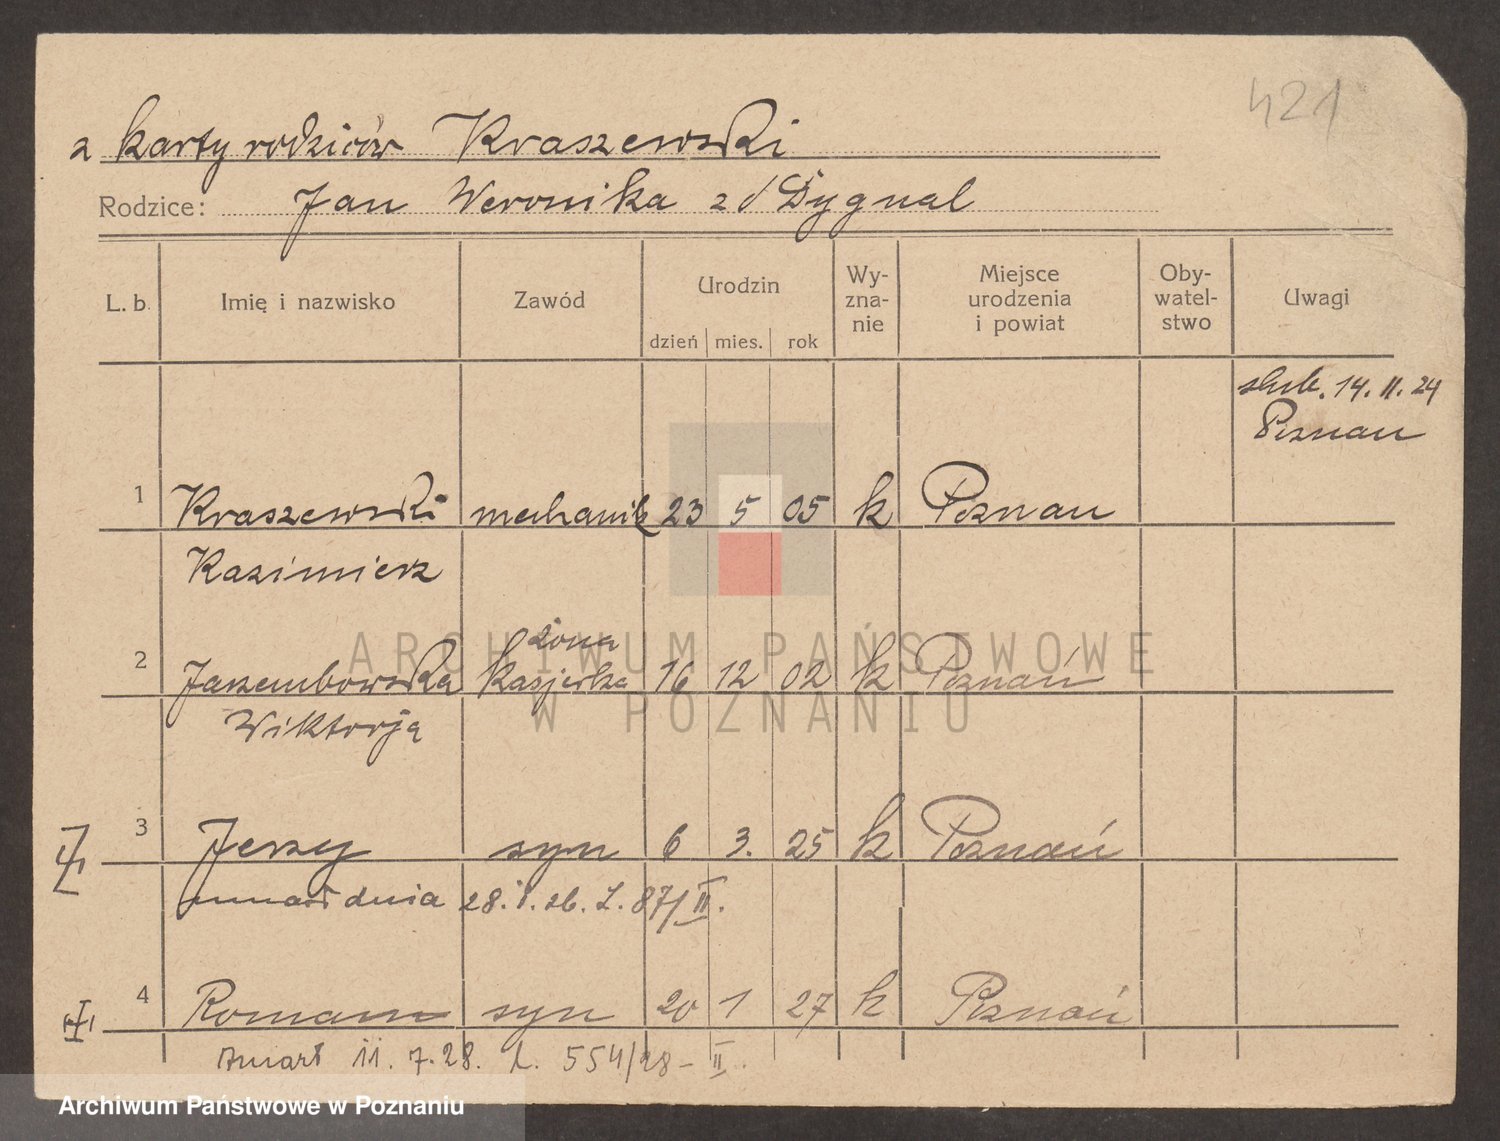 421
z karty rodziców Kraszewski
Rodzice: Jan Weronika z d/ Dygnal
L. b. Imię i nazwisko Zawód Urodzin dzień mies. rok Wy-zna-nie Miejsce urodzenia i powiat Oby-watel-stwo Uwagi
ślub. 14. II. 24
Poznan
1 Kraszewski mechanik 23 5 05 k Poznan
Kazimierz
żona
2 Jarzembowska kasjerka 16 12 02 k Poznań
Wiktorja
ARCHIWUM PAŃSTWOWE
W POZNANIU
3 Jerzy syn 6 3. 25 k Poznań
umarł dnia 28. 1. 26. L. 87/II.
4 Roman syn 20 1 27 k Poznań
Zmarł 11. 7. 28. L. 554/28 – II.
Archiwum Państwowe w Poznaniu